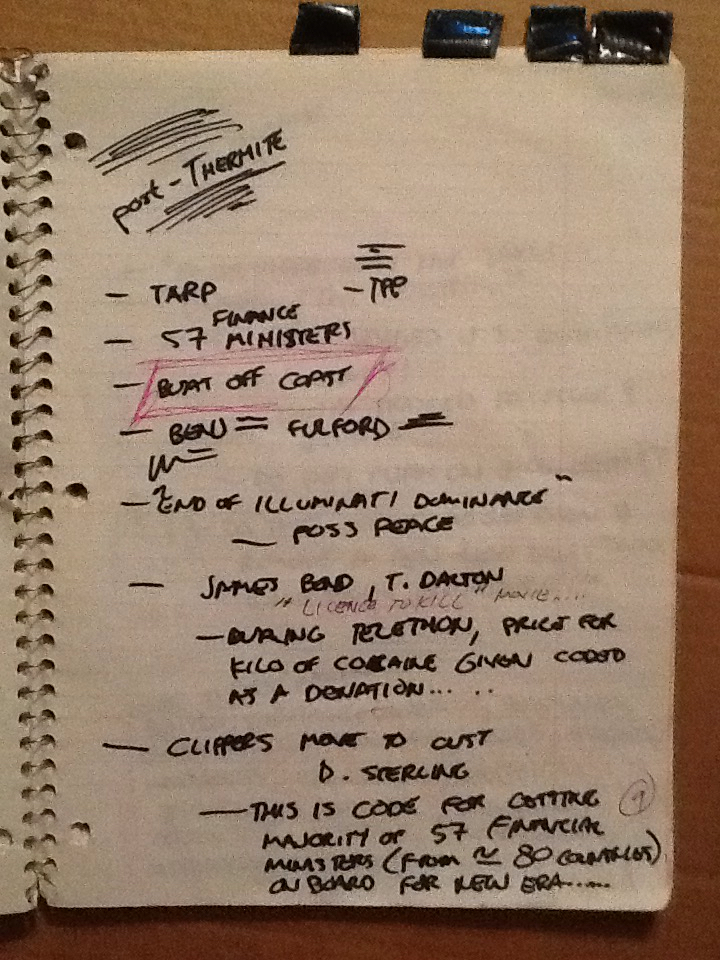 post-THERMITE
- TARP - TPP
- 57 FINANCE MINISTERS
- BOAT OFF COAST
- BEN FULFORD
- "END OF ILLUMINATI DOMINANCE"
- POSS PEACE
- JAMES BOND, T. DALTON
"LICENCE TO KILL" MOVIE....
- DURING TELETHON, PRICE FOR
KILO OF COCAINE GIVEN CODED
AS A DONATION... ..
- CLIPPERS MOVE TO OUST
D. STERLING
- THIS IS CODE FOR GETTING
MAJORITY OF 57 FINANCIAL
MINISTERS (FROM ≃ 80 COUNTRIES)
ON BOARD FOR NEW ERA......